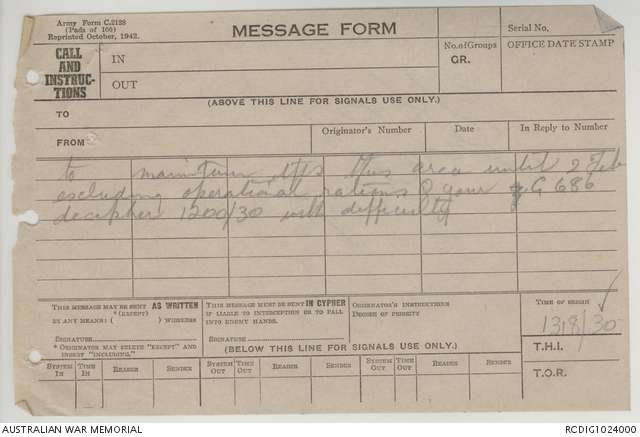 Army Form C.2128
(Pads of 100)
Reprinted October, 1942.
MESSAGE FORM
Serial No.
CALL
AND
INSTRUC-
TIONS
IN
OUT
No. of Groups
GR.
OFFICE DATE STAMP
(ABOVE THIS LINE FOR SIGNALS USE ONLY.)
TO
FROM
Originator's Number
Date
In Reply to Number
to maintain this area until 2 Feb
excluding operational rations your G 686
decipher 1200/30 with difficulty
THIS MESSAGE MAY BE SENT AS WRITTEN
" (EXCEPT)
BY ANY MEANS: ( ) WIRELESS
SIGNATURE
* ORIGINATOR MAY DELETE "EXCEPT" AND
INSERT "INCLUDING."
THIS MESSAGE MUST BE SENT IN CYPHER
IF LIABLE TO INTERCEPTION OR TO FALL
INTO ENEMY HANDS.
SIGNATURE
ORIGINATOR'S INSTRUCTIONS
DEGREE OF PRIORITY
TIME OF ORIGIN
1318/30
T.H.I.
T.O.R.
(BELOW THIS LINE FOR SIGNALS USE ONLY.)
SYSTEM IN TIME IN READER SENDER SYSTEM OUT TIME OUT READER SENDER SYSTEM OUT TIME OUT READER SENDER
AUSTRALIAN WAR MEMORIAL
RCDIG1024000